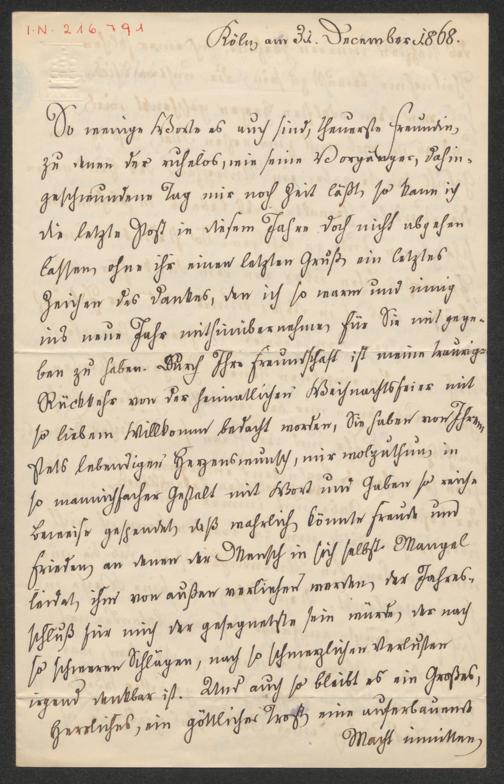 I.N. 216.791
Köln, am 31. December 1868.
So wenige Worte es auch sind, theuerste Freundin,
zu denen der ruhelos, wie seine Vorgänger, dahin-
geschwundene Tag mir noch Zeit läßt, so kann ich
die letzte Post in diesem Jahre doch nicht abgehen
lassen, ohne ihr einen letzten Gruß, ein letztes
Zeichen des Dankes, den ich so warm und innig
ins neue Jahr mithinübernehme, für Sie mit gege-
ben zu haben. Durch Ihre Freundschaft ist meine traurige
Rückkehr von der heimatlichen Weihnachtsfeier mit
so liebem Willkomm bedacht worden, Sie haben von Ihrem
stets lebendigen Herzenswunsch, mir wolzuthun, in
so mannichfacher Gestalt mit Wort und Gaben so reiche
Beweise gespendet, daß wahrlich, könnte Freude und
Frieden, an denen der Mensch in sich selbst Mangel
leidet, ihm von außen verliehen werden, der Jahres-
schluß für mich der gesegnetste sein würde, der nach
so schweren Schlägen, nach so schmerzlichen Verlusten
irgend denkbar ist. Und auch so bleibt es ein Großes,
Herrliches, ein göttlicher Trost, eine auferbauende
Macht inmitten